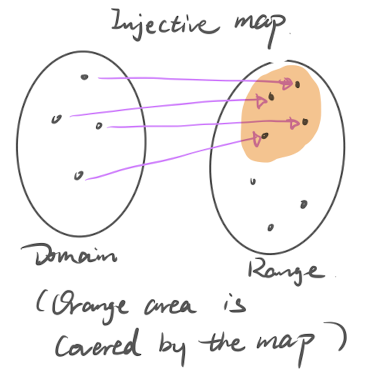 Injective map
Domain
Range
(Orange area is
covered by the map)